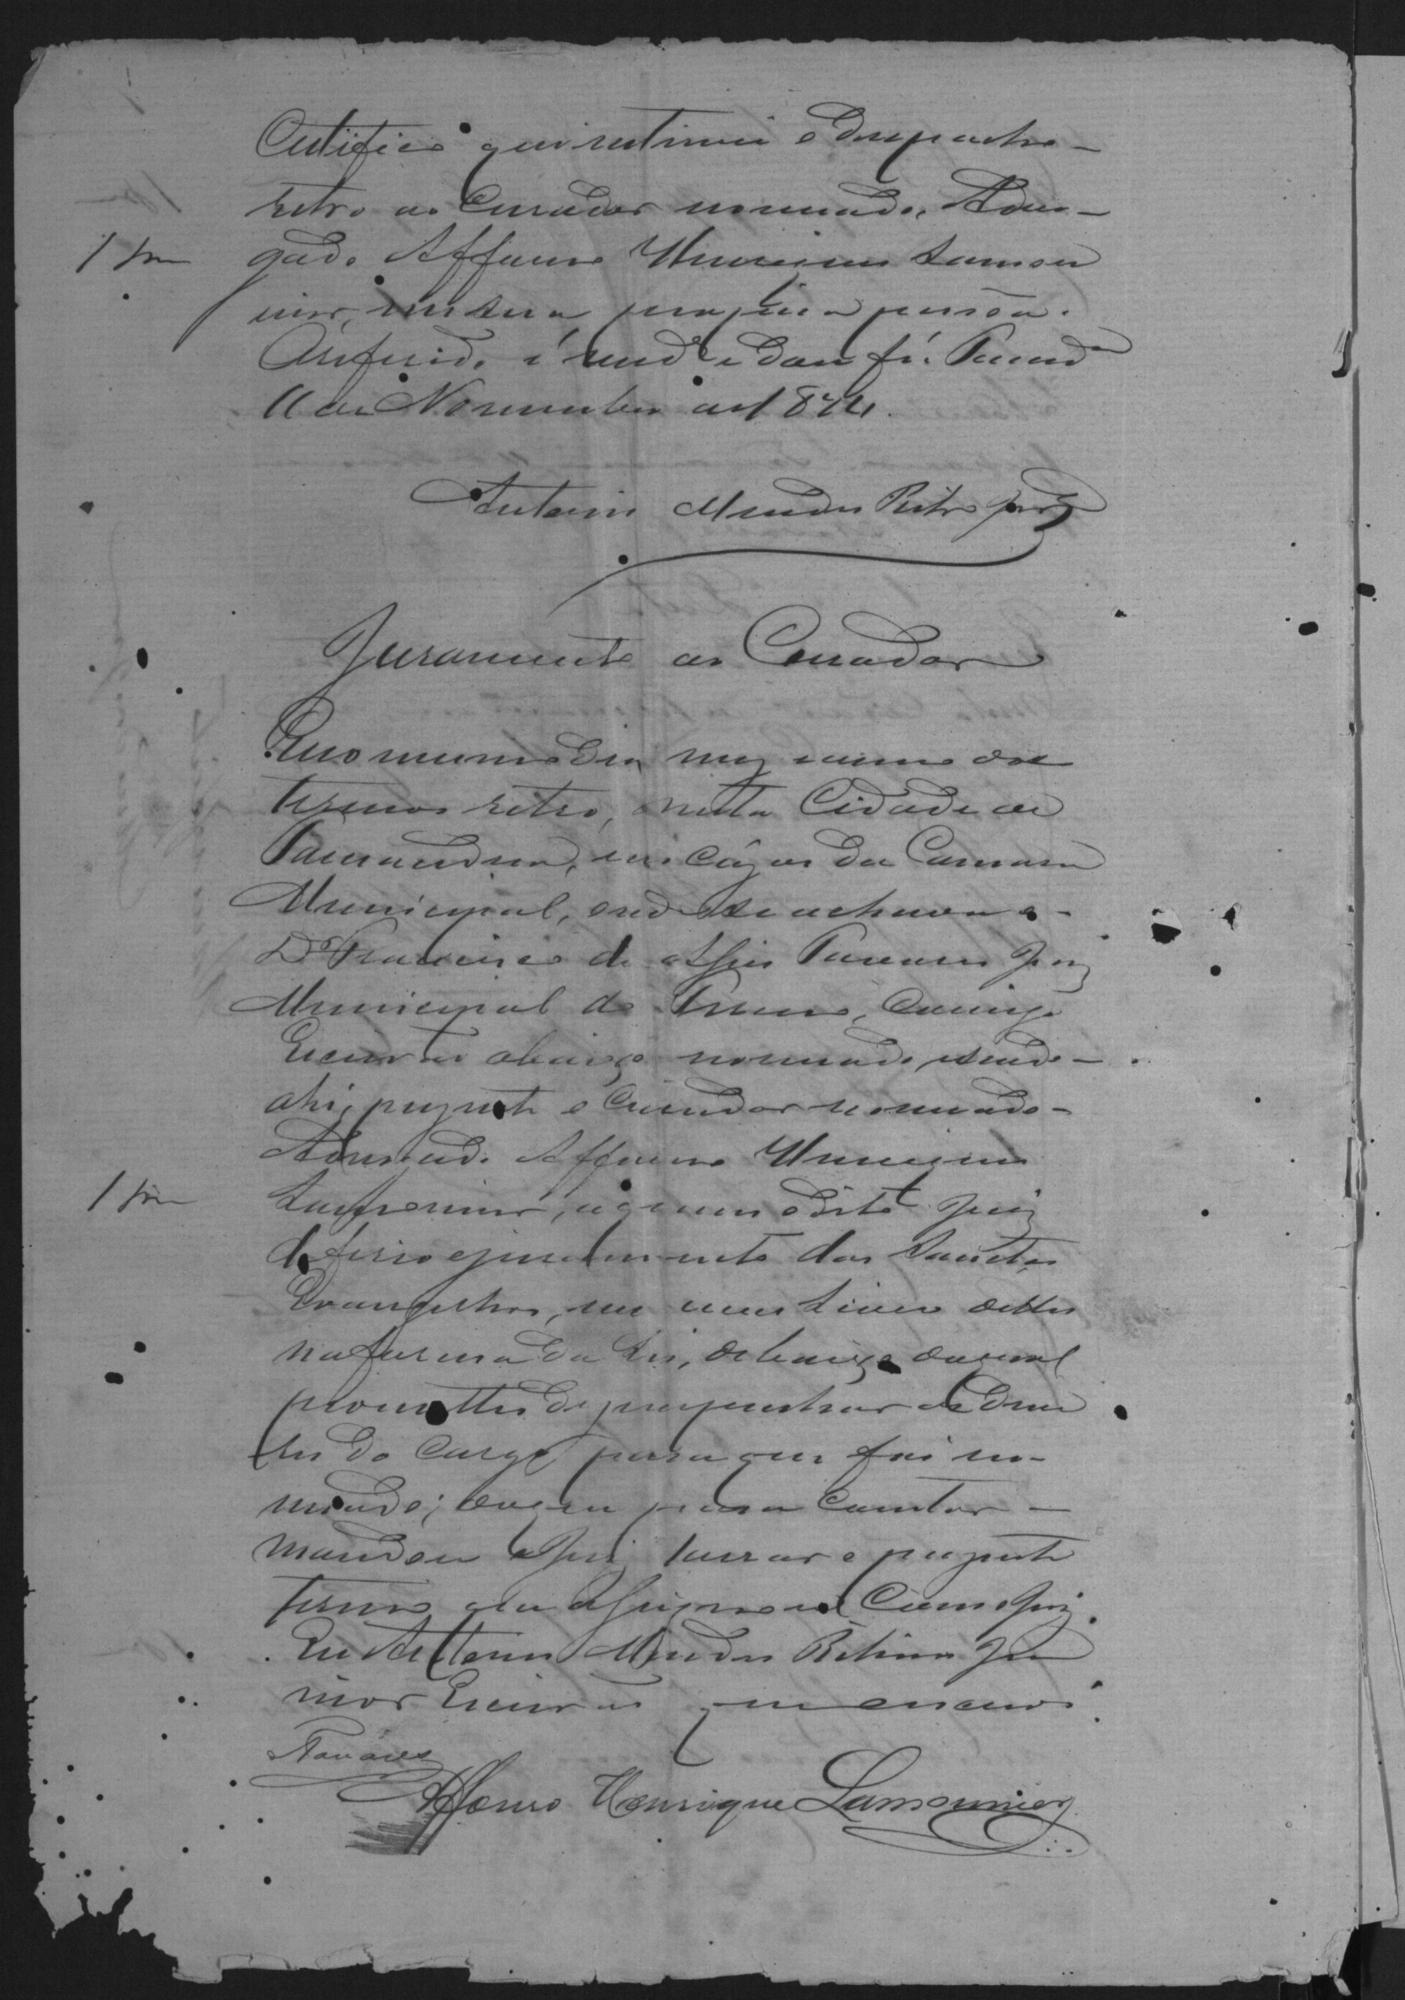 Certifico que intimei o despacho
retro ao Curador nomeado, Advo-
gado Affonso Henriques Lamou
nier, em sua propria pessôa.
O referido é verd.e e dou fé.
11 de Novembro de 1874.
Antonio Mendes Ribr.o Jun.or
Juramento ao Curador
E no mesmo dia mez e anno dos
termos retro, n'esta Cidade de
em caza da Camara
Municipal, onde se achava o
Dr Francisco de Assis Tavares Juiz
Municipal do Termo, comigo
Escrivão abaixo nomeado, sendo
ahi, prezente o Curador nomeado
Advogado Affonso Henriques
Lamounier, a quem o dito Juiz
deferio o juramento dos Santos
Evangelhos, em um livro delles
na forma da Lei, debaixo do qual
prometteu dezempenhar os deve
res do cargo para que foi no-
meado; do que para constar
mandou o Juiz lavrar o prezente
termo que assignou com o Juiz.
Eu Antonio Mendes Ribeiro Ju
nior Escrivão que escrevi.
Tavares
Affonso Henrique Lamounier